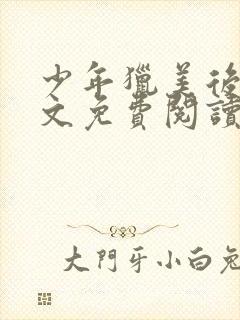 少年獵美後
文免費閱讀
大門牙小白兔